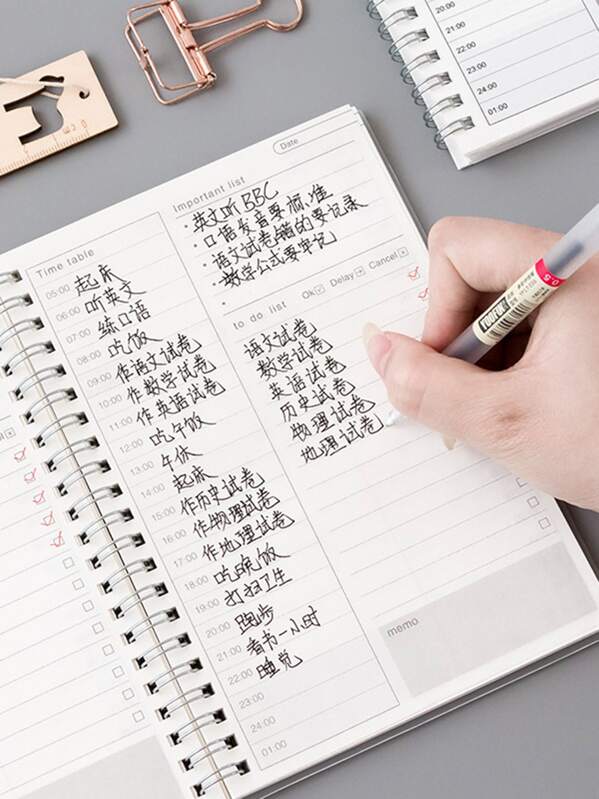 20:00
21:00
22:00
23:00
24:00
01:00
Date
Important list
· 英文听BBC
· 口语发音要标准
· 语文试卷错的要记录
· 数学公式要牢记
·
Time table
05:00 起床
06:00 听英文
07:00 练口语
08:00 吃饭
09:00 作语文试卷
10:00 作数学试卷
11:00 作英语试卷
12:00 吃午饭
13:00 午休
14:00 起床
15:00 作历史试卷
16:00 作物理试卷
17:00 作地理试卷
18:00 吃晚饭
19:00 打扫卫生
20:00 跑步
21:00 看书一小时
22:00 睡觉
23:00
24:00
01:00
to do list Ok Delay Cancel
语文试卷
数学试卷
英语试卷
历史试卷
物理试卷
地理试卷
memo
0.5